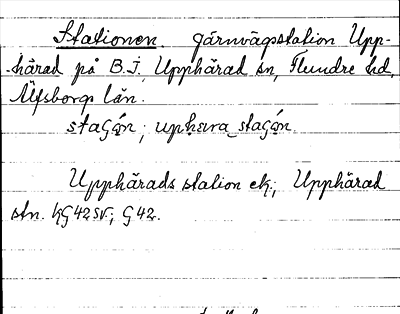 Stationen. Järnvägsstation Upp-
härad på B.J., Upphärad sn, Flundre hd,
Älfsborgs län.
Upphärads station ek; Upphärad
stn. kG42SV; G42.